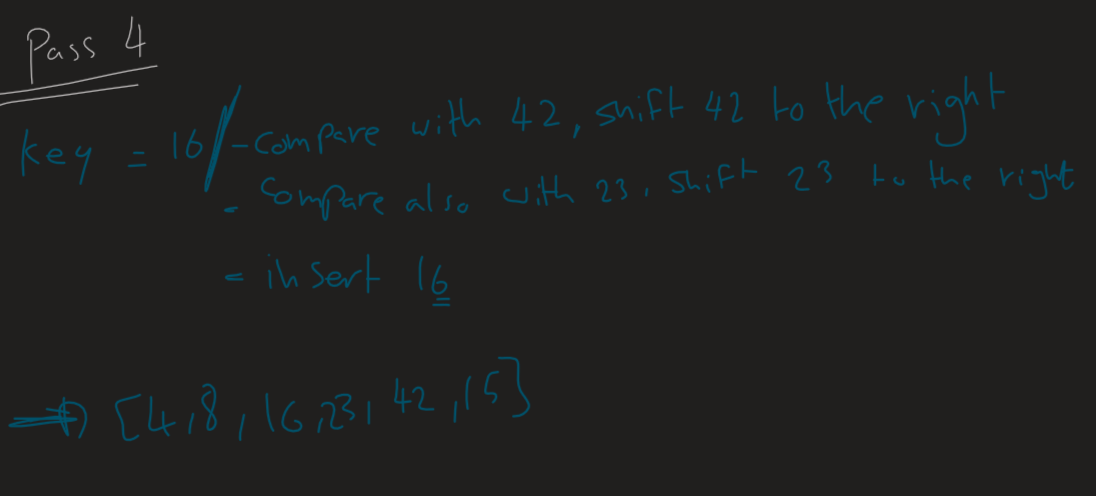 Pass 4
key = 16 / - compare with 42, shift 42 to the right
- Compare also with 23, shift 23 to the right
= insert 16
⇒ [4,8,16,23,42,15]